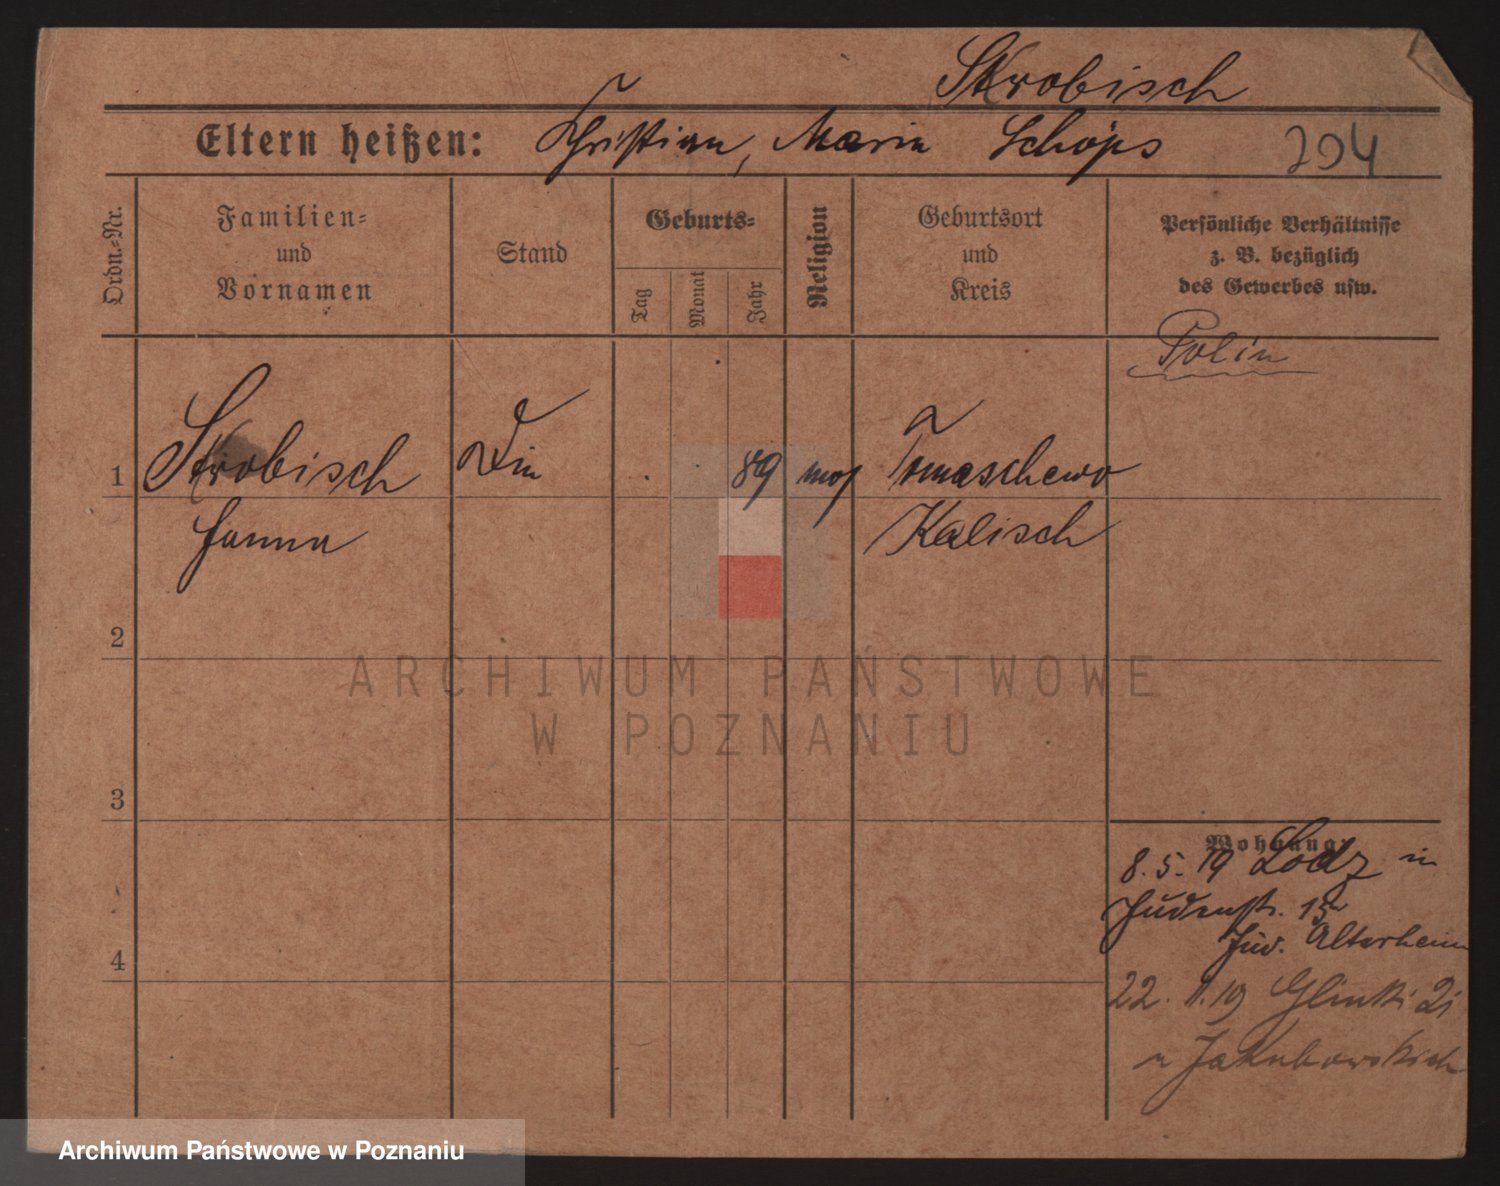 Skrobisch
Eltern heißen: Christian, Maria Schöps 204
Ordn.-Nr.
Familien-
und
Vornamen
Stand
Geburts-
Tag
Monat
Jahr
Religion
Geburtsort
und
Kreis
Persönliche Verhältnisse
z. B. bezüglich
des Gewerbes usw.
Polin
1 Skrobisch 89 Tomaschewo
Kalisch
2
ARCHIWUM PAŃSTWOWE
W POZNANIU
3
Wohnung:
8.5.19 Lodz in
Judenstr. 15
Jüd. Altersheim
4
22. 11. 19 Glinki
Jakubowskich
Archiwum Państwowe w Poznaniu